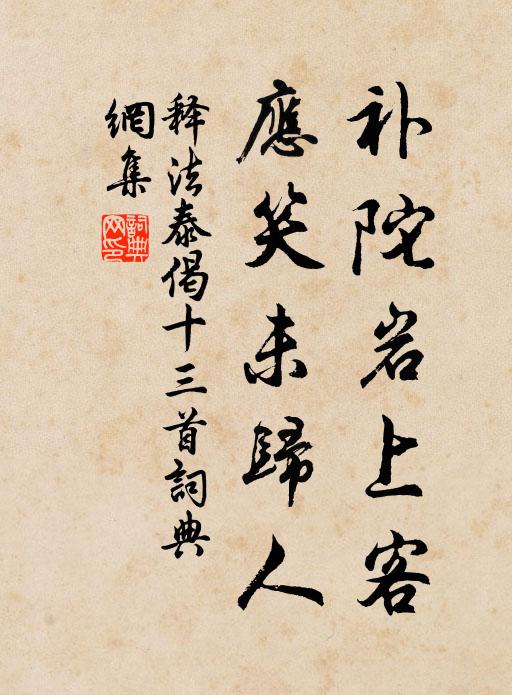 补陀岩上客
應笑未歸人
释法泰偈十三首詞典
網集
詞典
网印